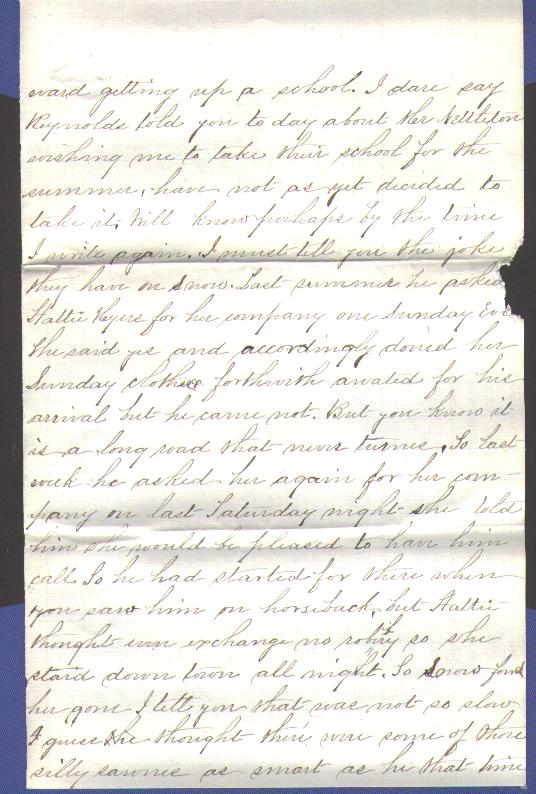 ward getting up a school. I dare say
Reynolds told you to day about Nettleton
wishing me to take their school for the
summer, have not as yet decided to
take it. Will know perhaps by the time
I write again. I must tell you the joke
they have on Snow. Last summer he asked
Hattie Myers for her company one Sunday Eve
She said yes and accordingly doned her
Sunday clothes forthwith awated for his
arrival but he came not. But you know it
is a long road that never turnes. So last
week he asked her again for her com-
pany on last Saturday night she told
him she would be pleased to have him
call So he had started for there when
you saw him on horseback, but Hattie
thought even exchange no robry so she
staid down town all night. So Snow fond
her gone I tell you that was not so slow
I guess he thought there were some of those
silly as smart as he that time